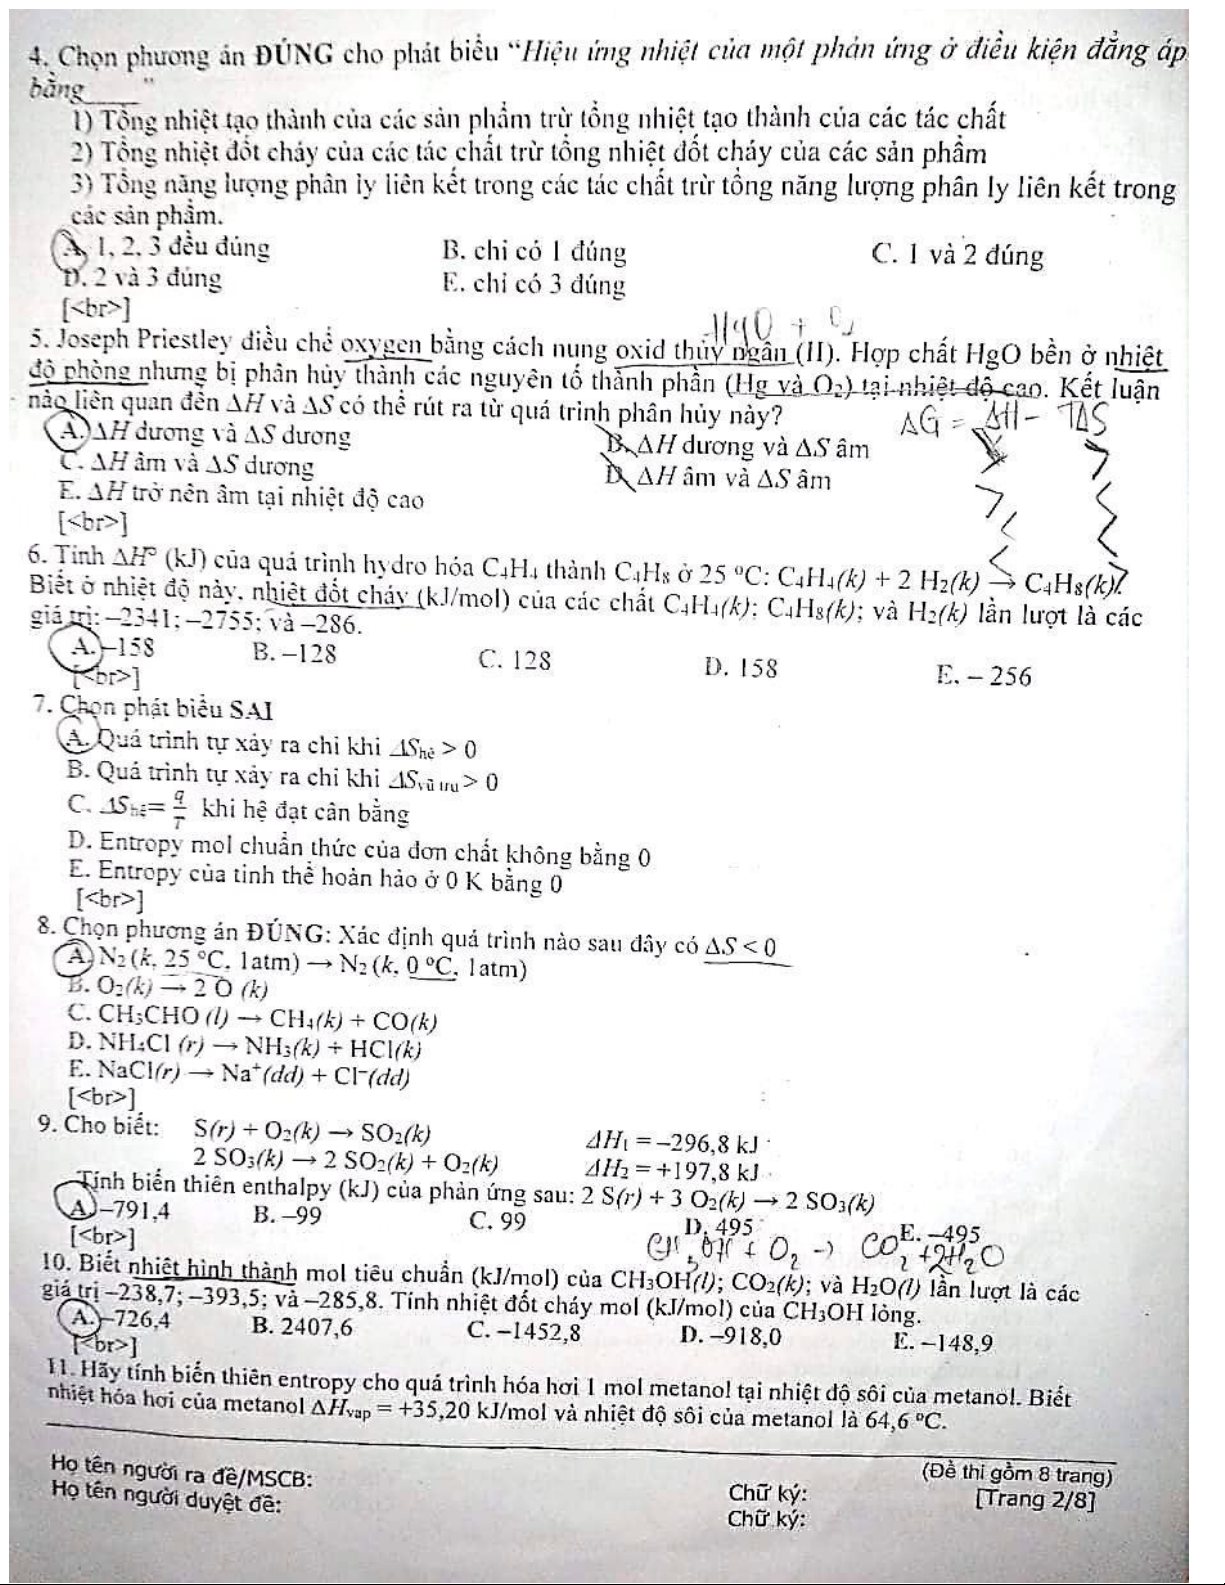 4. Chọn phương án ĐÚNG cho phát biểu “Hiệu ứng nhiệt của một phản ứng ở điều kiện đẳng áp
bằng____”
1) Tổng nhiệt tạo thành của các sản phẩm trừ tổng nhiệt tạo thành của các tác chất
2) Tổng nhiệt đốt cháy của các tác chất trừ tổng nhiệt đốt cháy của các sản phẩm
3) Tổng năng lượng phân ly liên kết trong các tác chất trừ tổng năng lượng phân ly liên kết trong
các sản phẩm.
A. 1, 2, 3 đều đúng B. chỉ có 1 đúng C. 1 và 2 đúng
D. 2 và 3 đúng E. chỉ có 3 đúng
[<br>]
HgO + O₂
5. Joseph Priestley điều chế oxygen bằng cách nung oxid thủy ngân (II). Hợp chất HgO bền ở nhiệt
độ phòng nhưng bị phân hủy thành các nguyên tố thành phần (Hg và O₂) tại nhiệt độ cao. Kết luận
nào liên quan đến ΔH và ΔS có thể rút ra từ quá trình phân hủy này?
ΔG = ΔH - TΔS
A. ΔH dương và ΔS dương B. ΔH dương và ΔS âm
C. ΔH âm và ΔS dương D. ΔH âm và ΔS âm
E. ΔH trở nên âm tại nhiệt độ cao
[<br>]
6. Tính ΔH° (kJ) của quá trình hydro hóa C₄H₄ thành C₄H₈ ở 25 °C: C₄H₄(k) + 2 H₂(k) → C₄H₈(k).
Biết ở nhiệt độ này, nhiệt đốt cháy (kJ/mol) của các chất C₄H₄(k); C₄H₈(k); và H₂(k) lần lượt là các
giá trị: –2341; –2755; và –286.
A. –158 B. –128 C. 128 D. 158 E. – 256
[<br>]
7. Chọn phát biểu SAI
A. Quá trình tự xảy ra chỉ khi ΔShệ > 0
B. Quá trình tự xảy ra chỉ khi ΔSvũ trụ > 0
C. ΔShệ = q/T khi hệ đạt cân bằng
D. Entropy mol chuẩn thức của đơn chất không bằng 0
E. Entropy của tinh thể hoàn hảo ở 0 K bằng 0
[<br>]
8. Chọn phương án ĐÚNG: Xác định quá trình nào sau đây có ΔS < 0
A. N₂ (k, 25 °C, 1atm) → N₂ (k, 0 °C, 1atm)
B. O₂(k) → 2 O (k)
C. CH₃CHO (l) → CH₄(k) + CO(k)
D. NH₄Cl (r) → NH₃(k) + HCl(k)
E. NaCl(r) → Na⁺(dd) + Cl⁻(dd)
[<br>]
9. Cho biết: S(r) + O₂(k) → SO₂(k) ΔH₁ = –296,8 kJ
2 SO₃(k) → 2 SO₂(k) + O₂(k) ΔH₂ = +197,8 kJ
Tính biến thiên enthalpy (kJ) của phản ứng sau: 2 S(r) + 3 O₂(k) → 2 SO₃(k)
A. –791,4 B. –99 C. 99 D. 495 E. –495
[<br>]
CH₃OH + O₂ → CO₂ + 2H₂O
10. Biết nhiệt hình thành mol tiêu chuẩn (kJ/mol) của CH₃OH(l); CO₂(k); và H₂O(l) lần lượt là các
giá trị –238,7; –393,5; và –285,8. Tính nhiệt đốt cháy mol (kJ/mol) của CH₃OH lỏng.
A. –726,4 B. 2407,6 C. –1452,8 D. –918,0 E. –148,9
[<br>]
11. Hãy tính biến thiên entropy cho quá trình hóa hơi 1 mol metanol tại nhiệt độ sôi của metanol. Biết
nhiệt hóa hơi của metanol ΔHvap = +35,20 kJ/mol và nhiệt độ sôi của metanol là 64,6 °C.
(Đề thi gồm 8 trang)
Họ tên người ra đề/MSCB: Chữ ký: [Trang 2/8]
Họ tên người duyệt đề: Chữ ký: